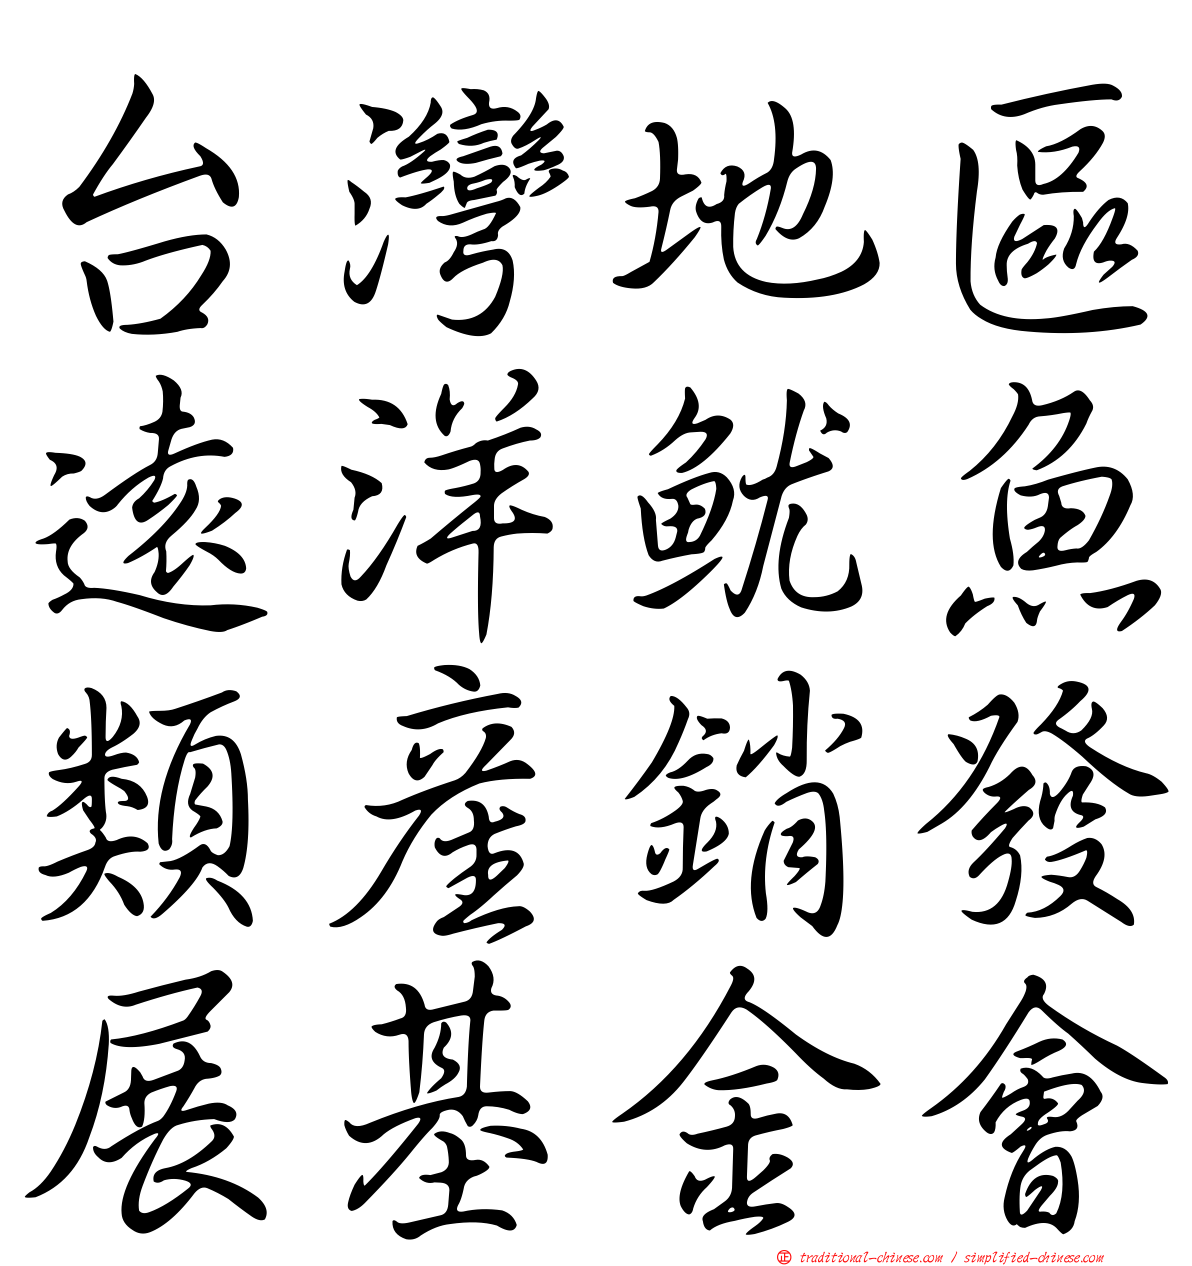 台灣地區
遠洋魷魚
類產銷發
展基金會
正 traditional-chinese.com / simplified-chinese.com